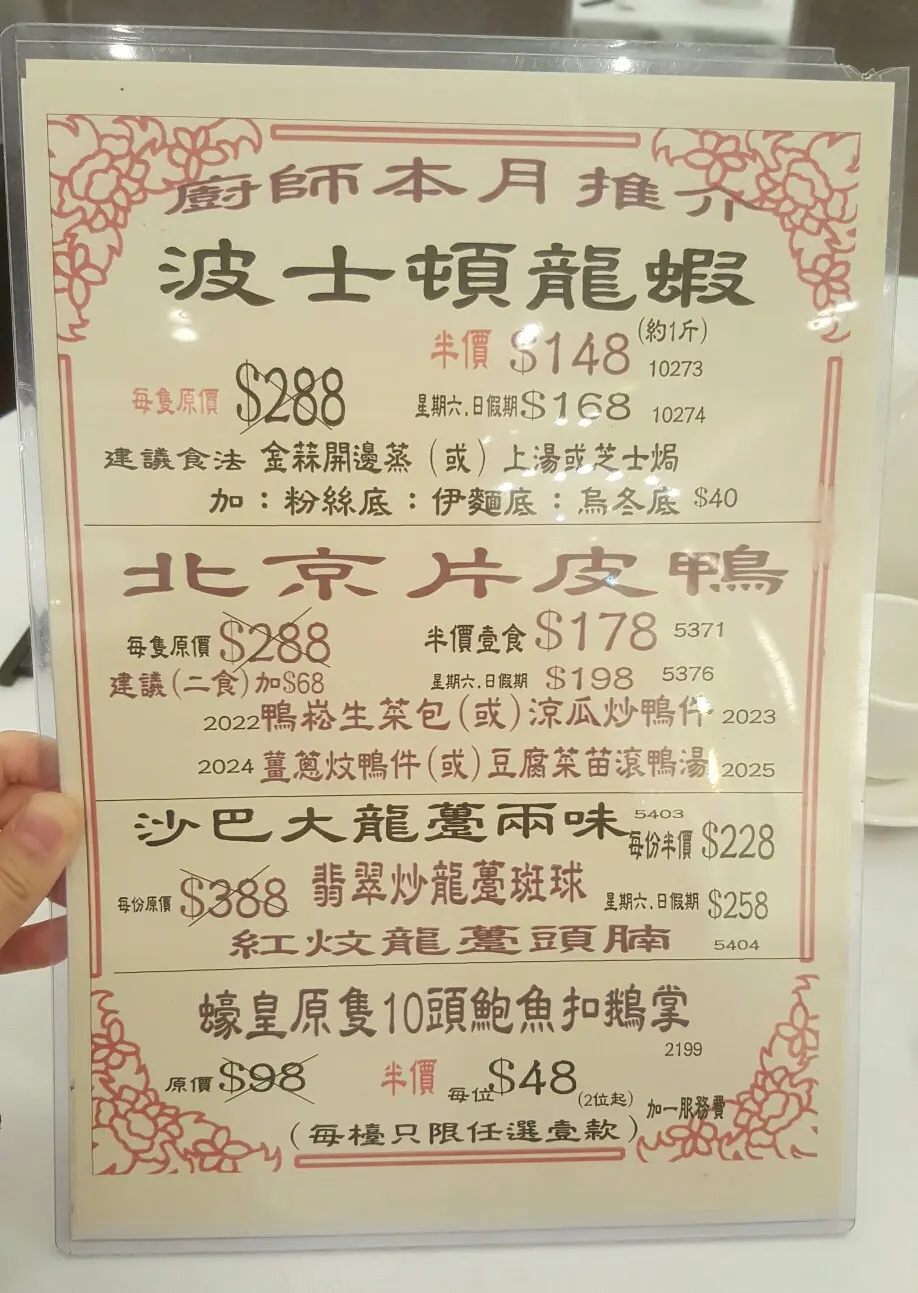 廚師本月推介
波士頓龍蝦
半價 $148 (約1斤) 10273
每隻原價 $288
星期六.日假期 $168 10274
建議食法 金蒜開邊蒸 (或) 上湯或芝士焗
加:粉絲底:伊麵底:烏冬底 $40
北京片皮鴨
每隻原價 $288 半價壹食 $178 5371
建議(二食)加$68 星期六.日假期 $198 5376
2022 鴨崧生菜包(或)涼瓜炒鴨件 2023
2024 薑蔥炆鴨件(或)豆腐菜苗滾鴨湯 2025
沙巴大龍躉兩味 5403
每份半價 $228
每份原價 $388 翡翠炒龍躉斑球
星期六.日假期 $258
紅炆龍躉頭腩 5404
蠔皇原隻10頭鮑魚扣鵝掌
2199
原價 $98 半價 每位 $48 (2位起) 加一服務費
(每檯只限任選壹款)